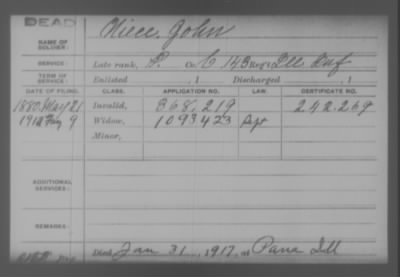 DEAD
NAME OF SOLDIER: Niece, John
SERVICE: Late rank, P. Co. C 143 Reg't Ill Inf
TERM OF SERVICE: Enlisted , 1 Discharged , 1
DATE OF FILING. CLASS. APPLICATION NO. LAW. CERTIFICATE NO.
1880, May 21 Invalid, 368,219 242.269
191 9 Widow, 1093423
Minor,
ADDITIONAL SERVICES:
REMARKS:
Died Jan 31, 1917, at Pana Ill